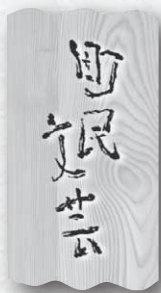 町民文芸